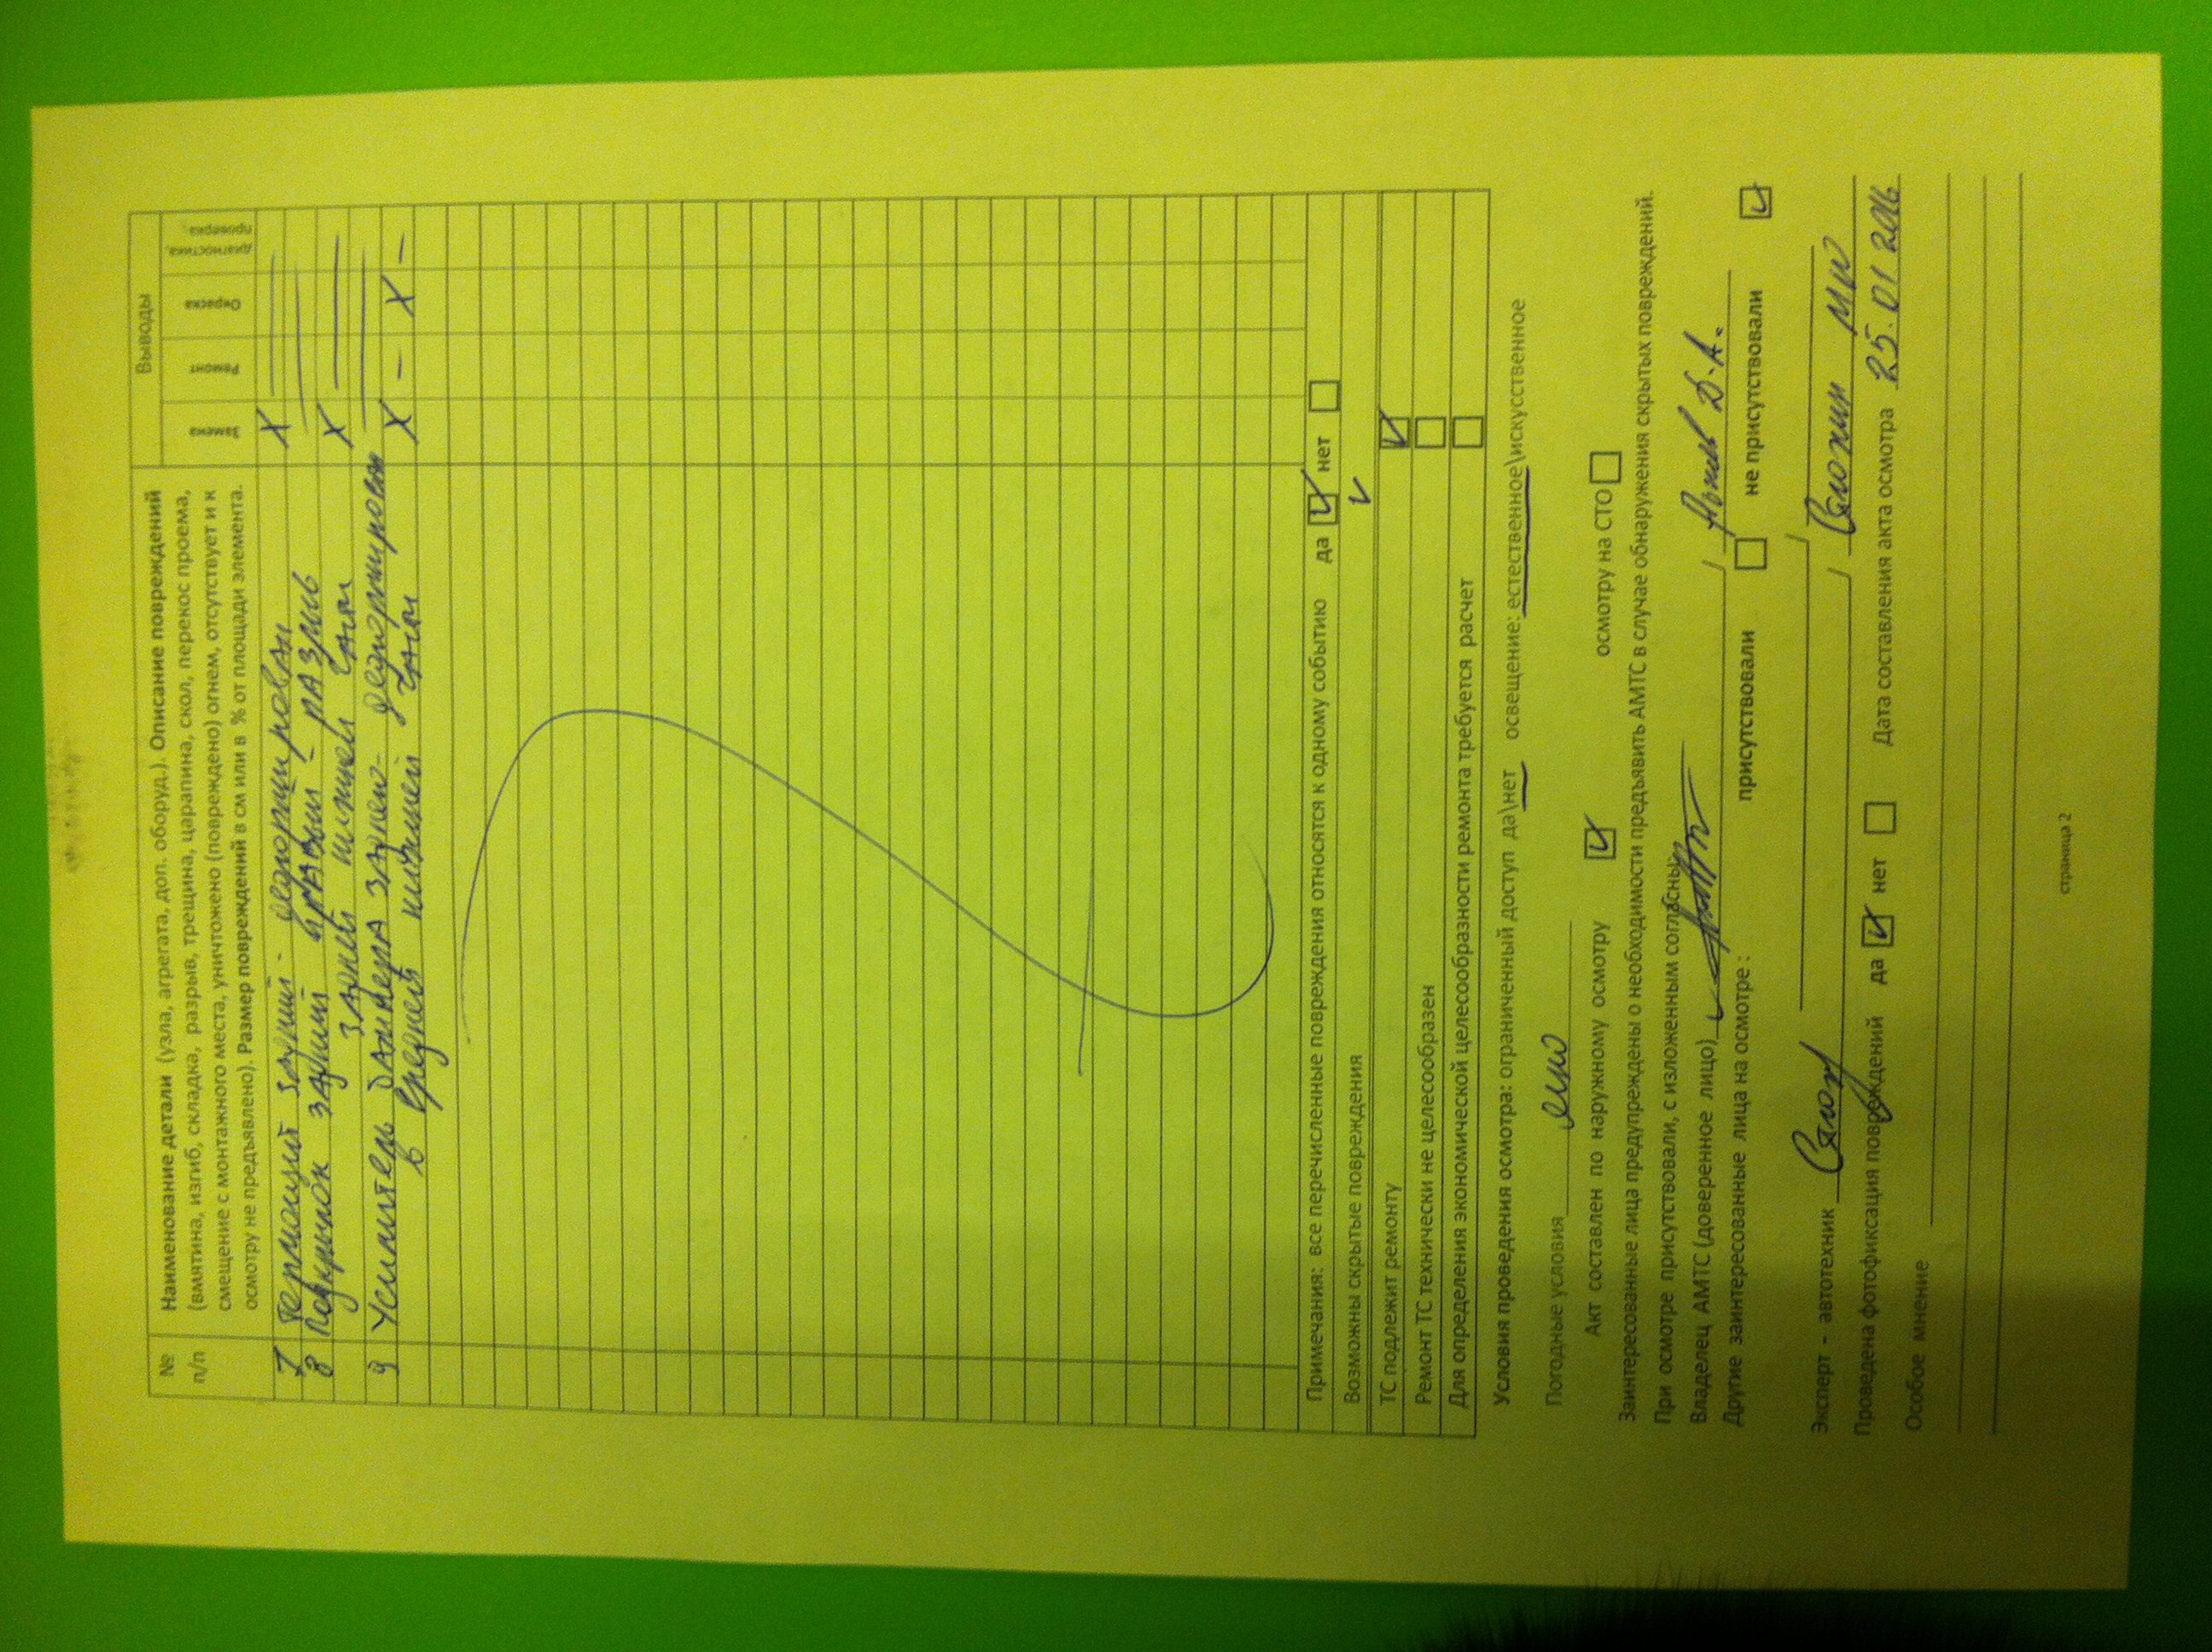 № п/п
Наименование детали (узла, агрегата, доп. оборуд.). Описание повреждений
(вмятина, изгиб, складка, разрыв, трещина, царапина, скол, перекос проема,
смещение с монтажного места, уничтожено (повреждено) огнем, отсутствует и к
осмотру не предъявлено). Размер повреждений в см или в % от площади элемента.
Выводы
Замена
Ремонт
Окраска
диагностика, проверка
7 задний - деформирован X
8 Подкрылок задний правый -
задней нижней части X
9 Усилитель бампера заднего - деформирован
в средней нижней части X - X -
Примечания: все перечисленные повреждения относятся к одному событию да ☑ нет ☐
Возможны скрытые повреждения ✓
ТС подлежит ремонту ☑
Ремонт ТС технически не целесообразен ☐
Для определения экономической целесообразности ремонта требуется расчет ☐
Условия проведения осмотра: ограниченный доступ да\нет освещение: естественное\искусственное
Погодные условия
Акт составлен по наружному осмотру ☑ осмотру на СТО ☐
Заинтересованные лица предупреждены о необходимости предъявить АМТС в случае обнаружения скрытых повреждений.
При осмотре присутствовали, с изложенным согласны:
Владелец АМТС (доверенное лицо) / Д.А.
Другие заинтересованные лица на осмотре: присутствовали ☐ не присутствовали ☑
Эксперт - автотехник /
Проведена фотофиксация повреждений да ☑ нет ☐ Дата составления акта осмотра 25.01 2016
Особое мнение
страница 2